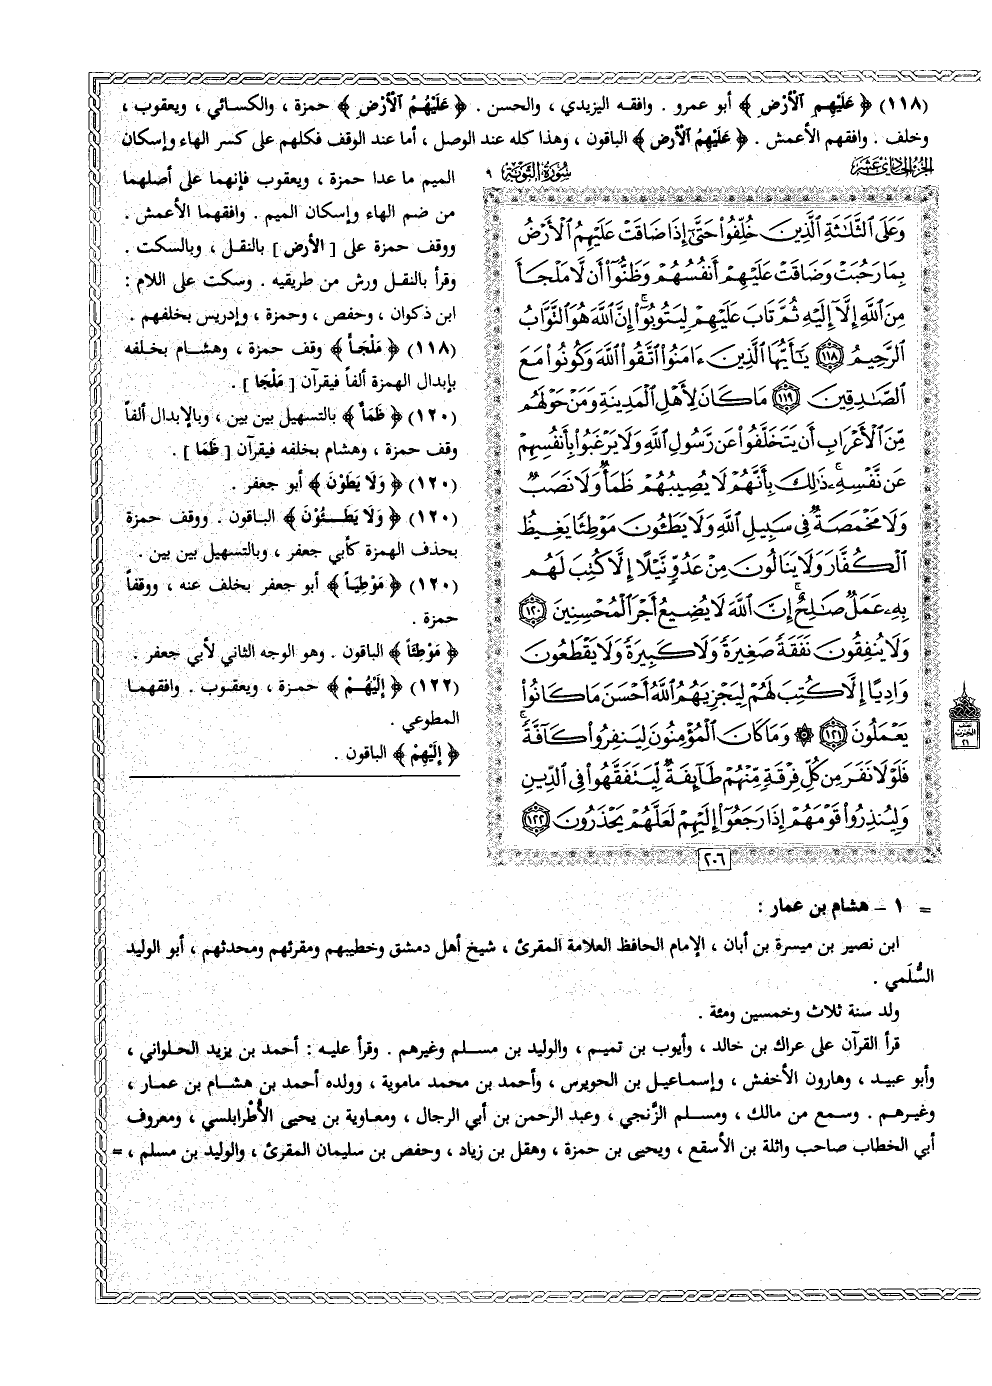 (١١٨) ﴿ عَلَيْهِمِ الْأَرْضُ ﴾ أبو عمرو . وافقه اليزيدي ، والحسن . ﴿ عَلَيْهُمُ الْأَرْضُ ﴾ حمزة ، والكسائي ، ويعقوب ،
وخلف . وافقهم الأعمش . ﴿ عَلَيْهِمُ الْأَرْضُ ﴾ الباقون ، وهذا كله عند الوصل ، أما عند الوقف فكلهم على كسر الهاء وإسكان
الميم ما عدا حمزة ، ويعقوب فإنهما على أصلهما
من ضم الهاء وإسكان الميم . وافقهما الأعمش .
ووقف حمزة على [ الأرض ] بالنقل ، وبالسكت .
وقرأ بالنقل ورش من طريقيه . وسكت على اللام :
ابن ذكوان ، وحفص ، وحمزة ، وإدريس بخلفهم .
(١١٨) ﴿ مَلْجَأَ ﴾ وقف حمزة ، وهشام بخلفه
بإبدال الهمزة ألفاً فيقرآن [ مَلْجَا ] .
(١٢٠) ﴿ ظَمَأٌ ﴾ بالتسهيل بين بين ، وبالإبدال ألفاً
وقف حمزة ، وهشام بخلفه فيقرآن [ ظَمَا ] .
(١٢٠) ﴿ وَلَا يَطَوْنَ ﴾ أبو جعفر .
(١٢٠) ﴿ وَلَا يَطَـُٔونَ ﴾ الباقون . ووقف حمزة
بحذف الهمزة كأبي جعفر ، وبالتسهيل بين بين .
(١٢٠) ﴿ مَوْطِيَاً ﴾ أبو جعفر بخلف عنه ، ووقفاً
حمزة .
﴿ مَوْطِئاً ﴾ الباقون . وهو الوجه الثاني لأبي جعفر .
(١٢٢) ﴿ إِلَيْهُمْ ﴾ حمزة ، ويعقوب . وافقهما
المطوعي .
﴿ إِلَيْهِمْ ﴾ الباقون .
الجزء الحادي عشر
سورة التوبة ٩
وَعَلَى الثَّلَاثَةِ الَّذِينَ خُلِّفُوا حَتَّىٰ إِذَا ضَاقَتْ عَلَيْهِمُ الْأَرْضُ
بِمَا رَحُبَتْ وَضَاقَتْ عَلَيْهِمْ أَنفُسُهُمْ وَظَنُّوا أَن لَّا مَلْجَأَ
مِنَ اللَّهِ إِلَّا إِلَيْهِ ثُمَّ تَابَ عَلَيْهِمْ لِيَتُوبُوا ۚ إِنَّ اللَّهَ هُوَ التَّوَّابُ
الرَّحِيمُ ١١٨ يَا أَيُّهَا الَّذِينَ ءَامَنُوا اتَّقُوا اللَّهَ وَكُونُوا مَعَ
الصَّادِقِينَ ١١٩ مَا كَانَ لِأَهْلِ الْمَدِينَةِ وَمَنْ حَوْلَهُم
مِّنَ الْأَعْرَابِ أَن يَتَخَلَّفُوا عَن رَّسُولِ اللَّهِ وَلَا يَرْغَبُوا بِأَنفُسِهِمْ
عَن نَّفْسِهِ ۚ ذَٰلِكَ بِأَنَّهُمْ لَا يُصِيبُهُمْ ظَمَأٌ وَلَا نَصَبٌ
وَلَا مَخْمَصَةٌ فِي سَبِيلِ اللَّهِ وَلَا يَطَئُونَ مَوْطِئًا يَغِيظُ
الْكُفَّارَ وَلَا يَنَالُونَ مِنْ عَدُوٍّ نَّيْلًا إِلَّا كُتِبَ لَهُم
بِهِ عَمَلٌ صَالِحٌ ۚ إِنَّ اللَّهَ لَا يُضِيعُ أَجْرَ الْمُحْسِنِينَ ١٢٠
وَلَا يُنفِقُونَ نَفَقَةً صَغِيرَةً وَلَا كَبِيرَةً وَلَا يَقْطَعُونَ
وَادِيًا إِلَّا كُتِبَ لَهُمْ لِيَجْزِيَهُمُ اللَّهُ أَحْسَنَ مَا كَانُوا
يَعْمَلُونَ ١٢١ ۞ وَمَا كَانَ الْمُؤْمِنُونَ لِيَنفِرُوا كَافَّةً ۚ
فَلَوْلَا نَفَرَ مِن كُلِّ فِرْقَةٍ مِّنْهُمْ طَائِفَةٌ لِّيَتَفَقَّهُوا فِي الدِّينِ
وَلِيُنذِرُوا قَوْمَهُمْ إِذَا رَجَعُوا إِلَيْهِمْ لَعَلَّهُمْ يَحْذَرُونَ ١٢٢
٢٠٦
= ١ - هشام بن عمار :
ابن نصير بن ميسرة بن أبان ، الإمام الحافظ العلامة المقرئ ، شيخ أهل دمشق وخطيبهم ومقرئهم ومحدثهم ، أبو الوليد
السُّلَمي .
ولد سنة ثلاث وخمسين ومئة .
قرأ القرآن على عراك بن خالد ، وأيوب بن تميم ، والوليد بن مسلم وغيرهم . وقرأ عليه : أحمد بن يزيد الحلواني ،
وأبو عبيد ، وهارون الأخفش ، وإسماعيل بن الحويرس ، وأحمد بن محمد مامويه ، وولده أحمد بن هشام بن عمار ،
وغيرهم . وسمع من مالك ، ومسلم الزَّنجي ، وعبد الرحمن بن أبي الرجال ، ومعاوية بن يحيى الأُطْرابلسي ، ومعروف
أبي الخطاب صاحب واثلة بن الأسقع ، ويحيى بن حمزة ، وهقل بن زياد ، وحفص بن سليمان المقرئ ، والوليد بن مسلم ، =